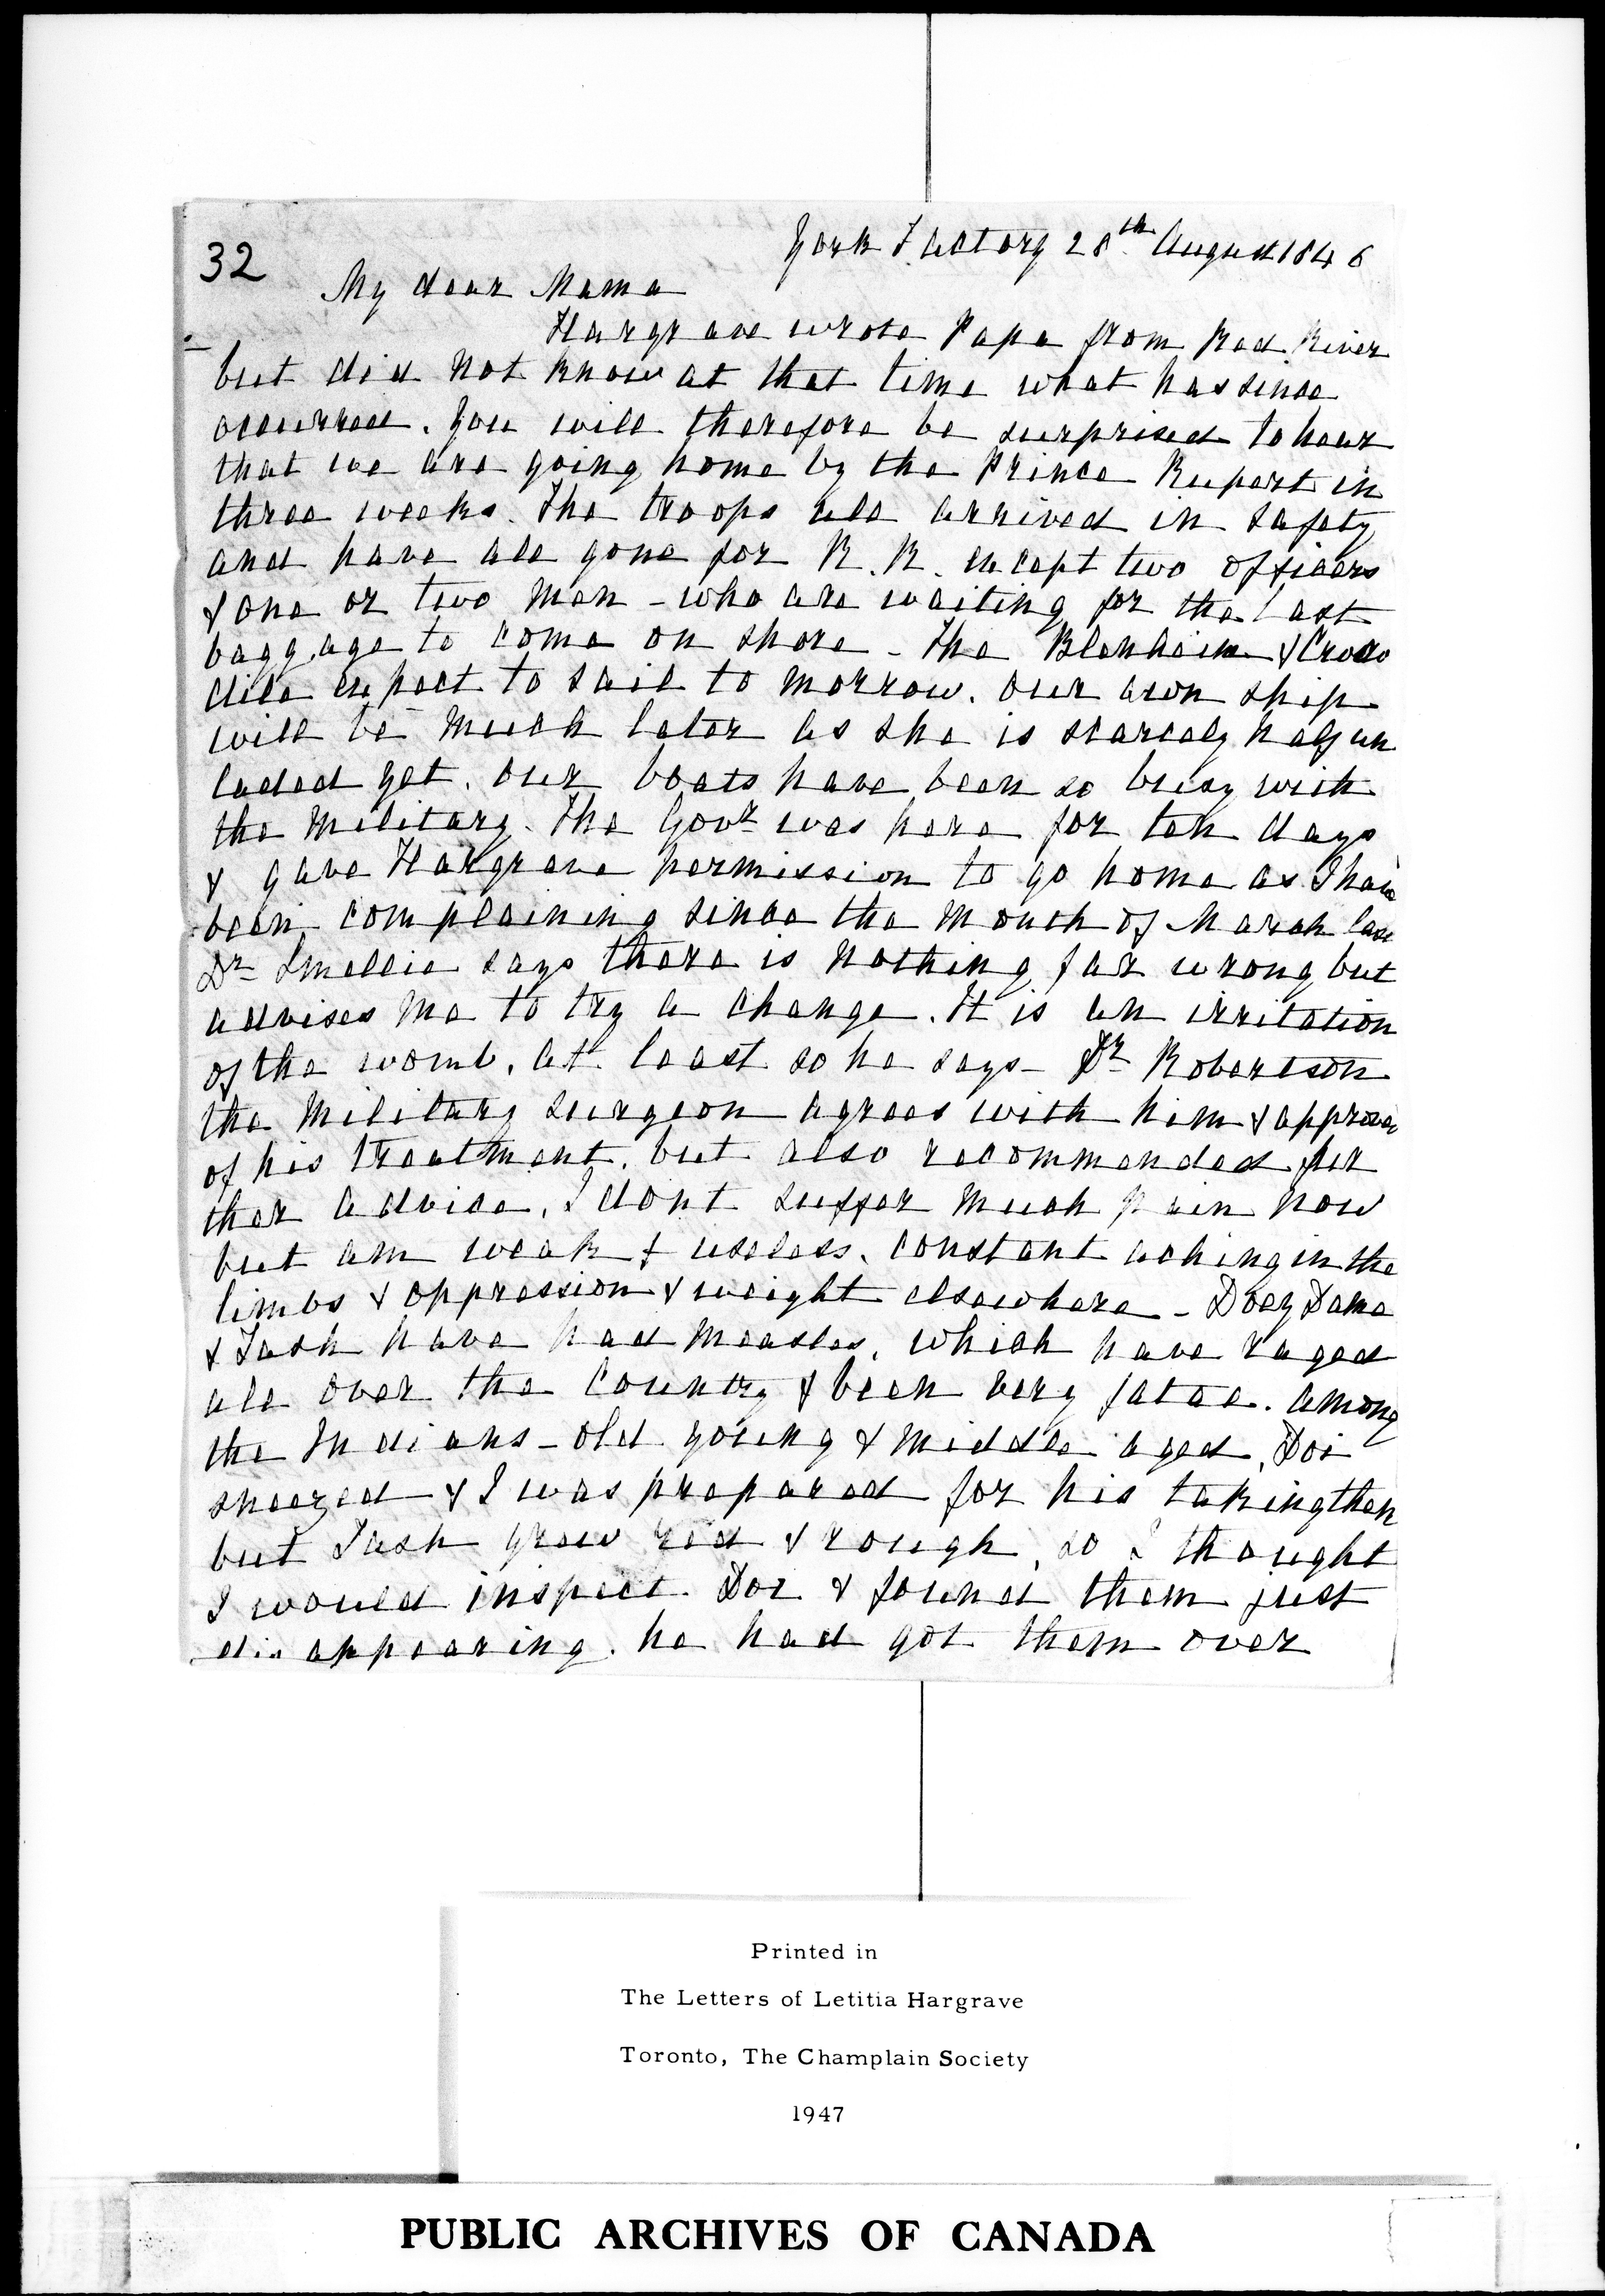 32
York Factory 28th August 1846
My dear Mama
Hargrave wrote Papa from Red River
but did not know at that time what has since
occurred. You will therefore be surprised to hear
that we are going home by the Prince Rupert in
three weeks. The troops all arrived in safety
and have all gone for R. R. except two officers
& one or two men - who are waiting for the last
baggage to come on shore - The Blenheim & Croco
dile expect to sail to morrow. Our own ship
will be much later as she is scarcely half un
laded yet. Our boats have been so busy with
the military. The Govr was here for ten days
& gave Hargrave permission to go home as I have
been complaining since the month of March last
Dr Smellie says there is nothing far wrong but
advises me to try a change. It is an irritation
of the womb, at least so he says - Dr Robertson
the military surgeon agrees with him & approves
of his treatment, but also recommended fur
ther advice, I dont suffer much pain now
but am weak & useless, constant aching in the
limbs & oppression & weight elsewhere - Doey
& Tash have had measles, which have raged
all over the country & been very fatal. among
the Indians - old young & middle aged, Doi
sneezed & I was prepared for his taking them
but Tash grew red & rough, so I thought
I would inspect Doi & found them just
disappearing. he had got them over
Printed in
The Letters of Letitia Hargrave
Toronto, The Champlain Society
1947
PUBLIC ARCHIVES OF CANADA